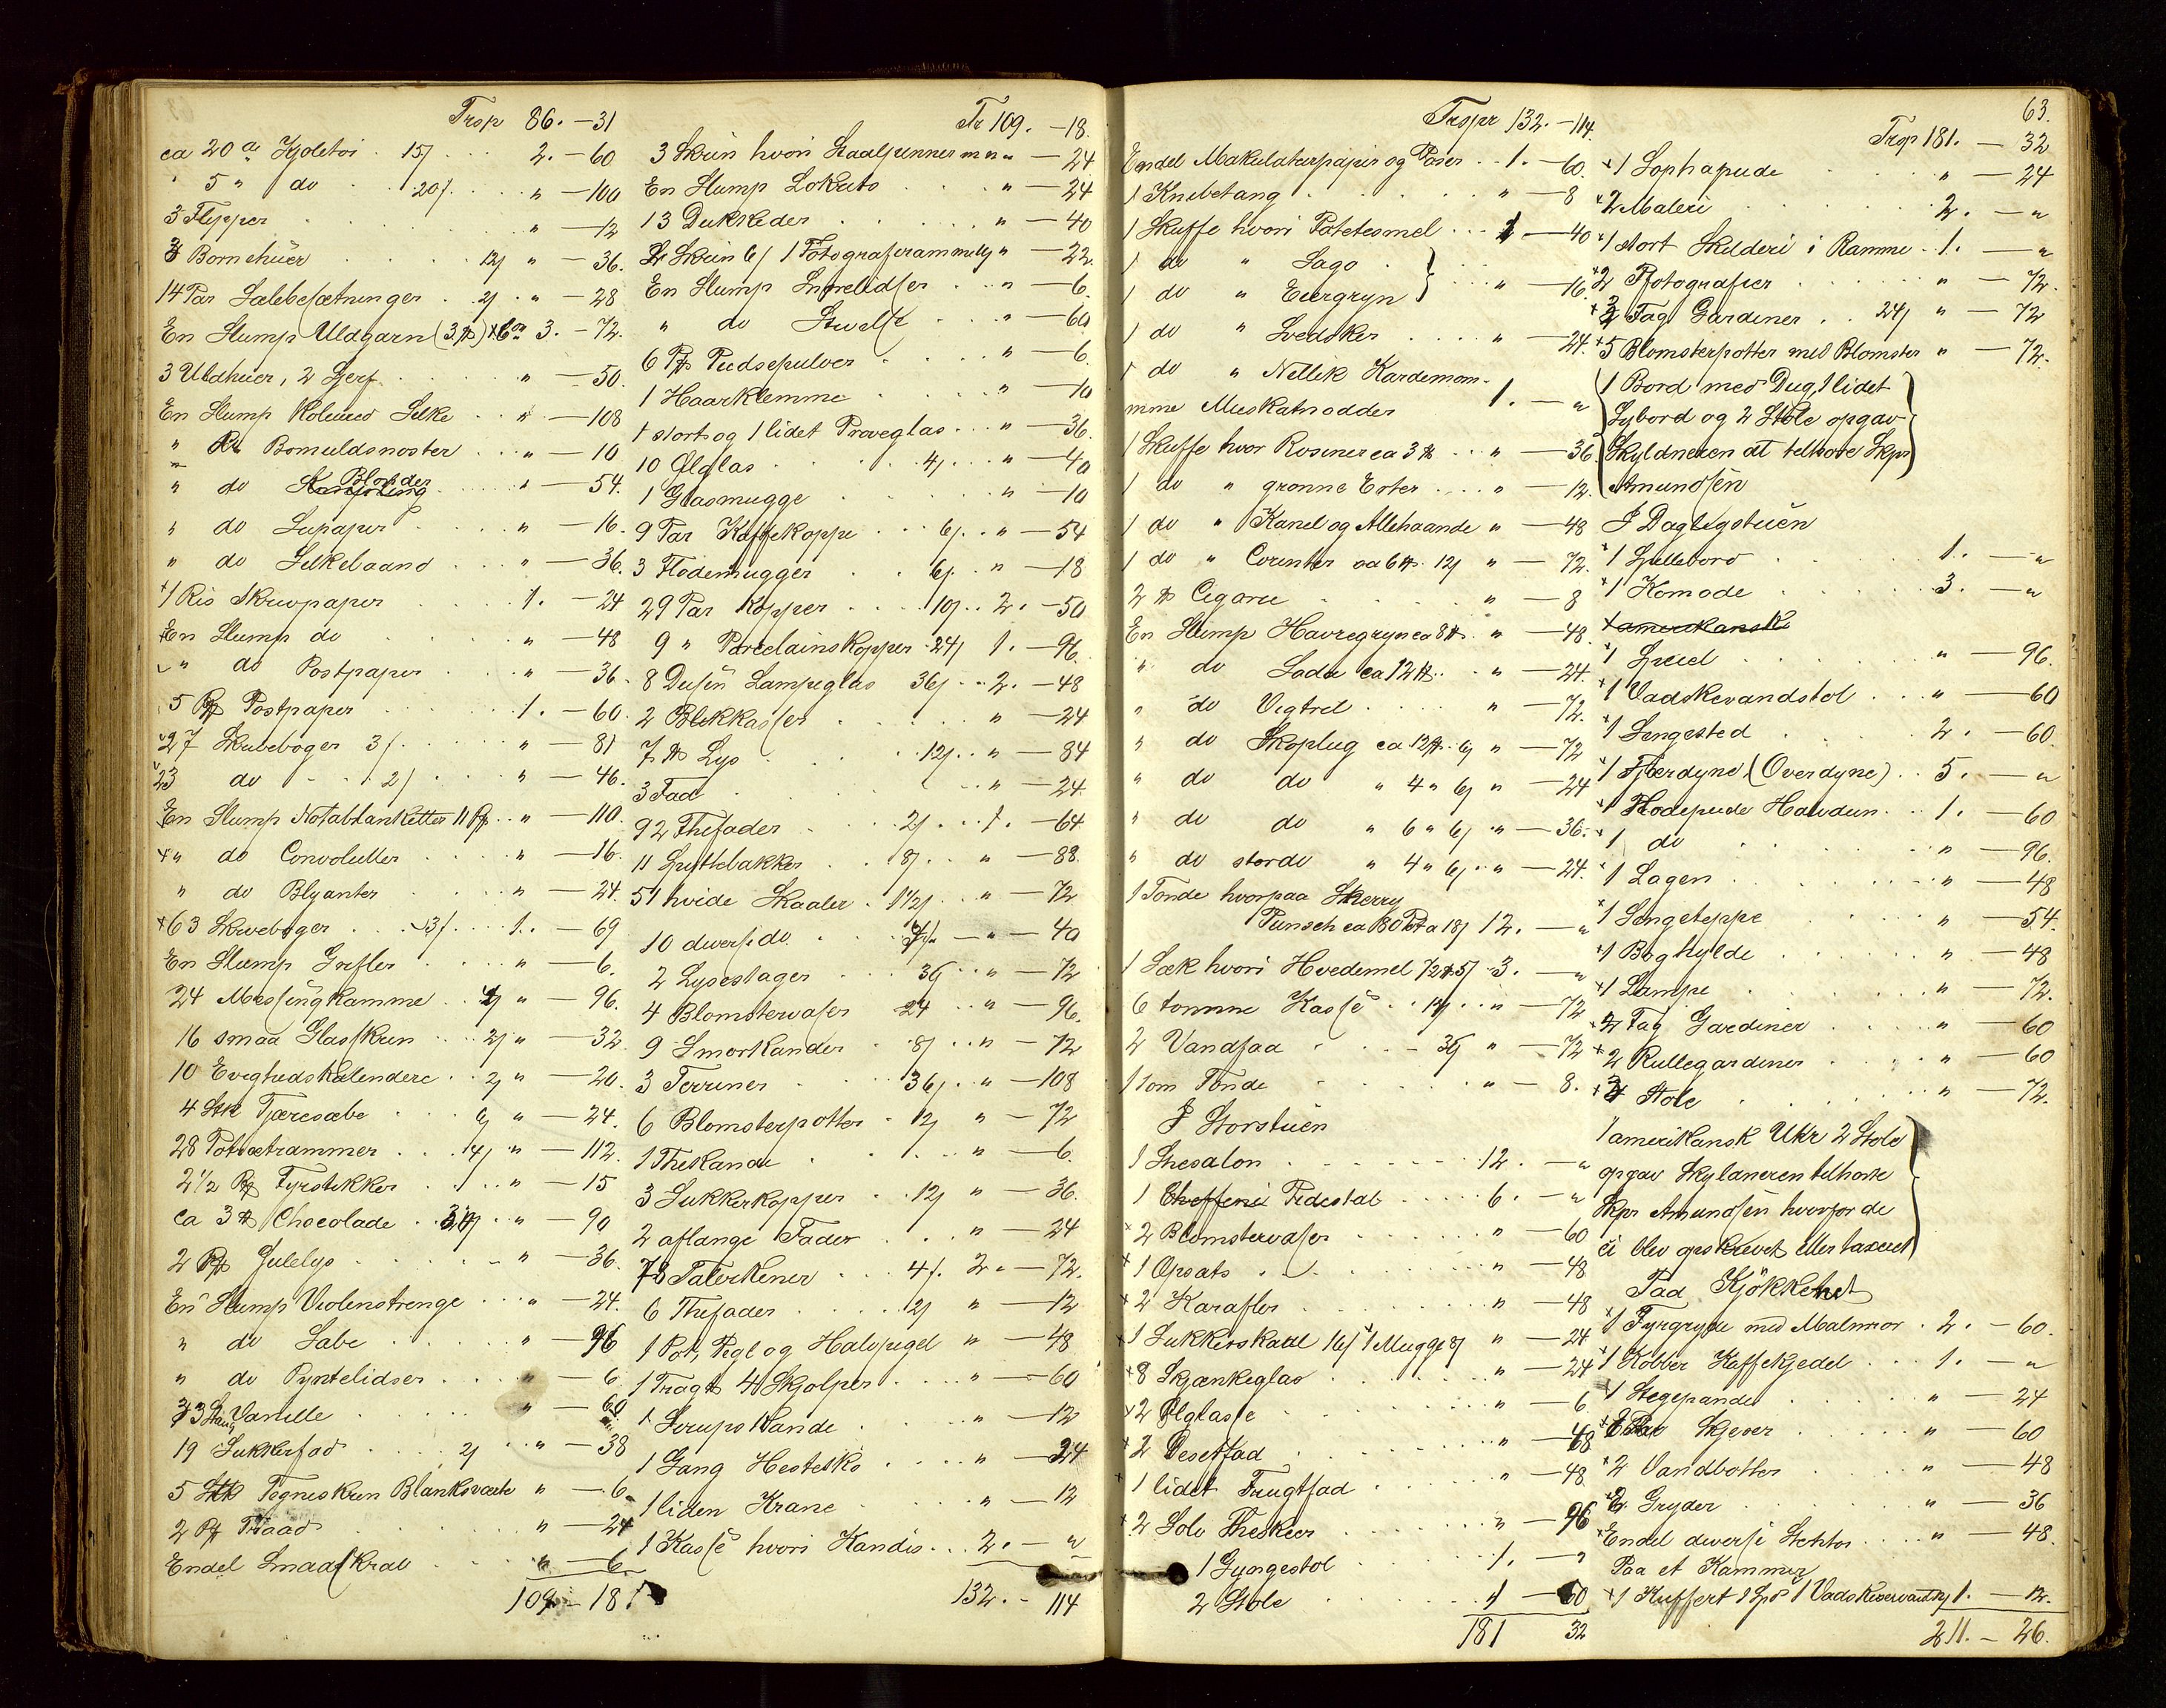 Trsp 86. - 31
ca 20 al Kjoletøi . 15/ . . . 2. - 60
" 5 " do . . 20/. . . " - 100
3 Flipper . . . " - 12
3 Børnehuer . . . 12/ " - 36.
14 Par Selebesætninger . 2/ . " - 28
En Slump Uldgarn (3 ℔) 3. - 72.
3 Uldhuer, 2 Skjerf . . . " - 50.
En Slump Kolluered Silke . . " - 108
" Do Bomuldsnøster . . . " - 10
" do Blonder . . . " - 54.
" do Supapir . . . " - 16.
" do Silkebaand . . " - 36.
+1 Ris Skrivpapir . . . 1. - 24
En Slump do . . . " - 48
" do Postpapir . . " - 36.
5 Pk Postpapir . . . 1. - 60.
27 Skrivebøger 3/. . . " - 81
23 do - . . 2/ . . " - 46.
En Slump Notablanketter 11 Pk . . " - 110.
+ " do Convolutter . . . " - 16.
" do Blyanter . . . " - 24.
+63 Skrivebøger . . . 3/. . . 1. - 69
En Slump Grifler . . . " - 6.
24 Messingkamme . . 4/ " - 96.
16 smaa Glasskrin . . . 2/ " - 32.
10 Evighedskalendere . . 2/ " - 20.
4 Stk Tjæresæbe . . . 6/ " - 24.
28 Potrætrammer . . . 4/ " - 112.
2 1/2 Pk Fyrstikker . . . " - 15
ca 3 ℔ Chocolade . . 30/ . " - 90
2 Pk Julelys . . . " - 36.
En Slump Violinstrenge . . . " - 24.
" do Sæbe . . . " - 96
" do Pyntelidser . . . " - 6.
3 Stang Vanille . . . " - 60
19 Sukkerfad . . . 2/ . . " - 38
5 Stk Tegneskrin Blanksværte " - 6.
2 Pk Traad . . . " - 24
Endel Smaaskrab . . . " - 6.
109 - 18
Tr 109. - 18.
3 Skrin hvori Staalpenner m m " - 24
En Slump Lokuts . . . " - 24
13 Dukkeder . . . " - 40
2 Skrin 6/ 1 Fotograferamme 10/ " - 22.
En Slump Snørelidser . . " - 6.
" do . . . " - 60
6 Pk Pudsepulver . . . " - 6.
1 Haarklemme . . . " - 10
1 stort og 1 lidet Prøveglas . . . " - 36.
10 Ølglas . . . 4/. . . " - 40
1 Glasmugge . . . " - 10
9 Par Kaffekoppe . . 6/. . " - 54
3 Flødemugger . . 6/. . " - 18
29 Par Kopper . . . 10/ . . 2. - 50
9 " Porcelainskopper . 24/ 1. - 96.
8 Dusin Lampeglas 36/ . . 2. - 48
2 Blikkasser . . . " - 24
7 ℔ Lys . . . 12/. . " - 84
3 Fad . . . " - 24.
92 Thefader . . . 2/ . . . 1. - 64.
11 Spyttebakker . . 8/. . " - 88.
51 hvide Skaaler . 1 1/2/ . . " - 72
10 diverse do . . . 4/. - " - 40
2 Lysestager . . . 36/ . . " - 72
4 Blomstervaser . . 24 . . " - 96.
9 Smørkander . . . 8/ . . " - 72
3 Terriner . . . 36/ . . " - 108
6 Blomsterpotter . 12/ " - 72
1 Thekande . . . " - 6.
3 Sukkerkopper . . 12/ " - 36.
2 aflange Fader . . . " - 24
78 Talerkener . . . 4/. 2. - 72.
6 Thefader . . . 2/ " - 12
1 Pot, Pegl og Halvpegel " - 48
1 Tragt 4 Skjolper . . . " - 60
1 Sirupskande . . . " - 12
1 Gang Hestesko . . . " - 24
1 liden Krane . . . " - 12
1 Kasse hvori Kandis . . . 2. - "
132. - 114
Trspr 132. - 114.
Endel Makulaturpapir og Poser . . 1. - 60.
1 Knibetang . . . " - 8
1 Skuffe hvori Potetesmel . . . - 40
1 do " Sago .
1 do " Eiergryn } . . " - 16.
1 do " Svedsker . . . " - 24.
1 do " Nellik Kardemom-
mme Muskatnødder 1. - "
1 Skuffe hvor Rosiner ca 3 ℔ . . . " - 36.
1 do " grønne Erter . . . " - 12.
1 do " Kanel og Allehaande " - 48
1 do " Corinter ca 6 ℔. 12/ " - 72.
2 ℔ Cigorie . . . " - 8
En Slump Havregryn ca 8 ℔. " - 48.
" do Soda ca 12 ℔. . " - 24.
" do Vigtril . . . " - 72.
" do Skoplug ca 12 ℔. 6/ " - 72
" do do " 4 " 6/ " - 24
" do do " 6 " 6/ " - 36.
" do større " 4 " 6/ . " - 24.
1 Tønde hvorpaa Sherry
Punsch ca 80 Pot a 18/ 12. - "
1 Sæk hvori Hvedemel 72 ℔ 5/ . 3. - "
6 tomme Kasse . . 12/ . . " - 72
2 Vandfad . . . 36/ " - 72
1 tom Tønde . . . " - 8.
I Storstuen
1 Shesalon . . . 12. - "
1 Cheffeni Pidestal . . . 6. - "
+2 Blomstervaser . . . " - 60
+1 Opsats . . . " - 48
+2 Karafler . . . " - 48
+1 Sukkerskaal 16/ +1 Mugge 8/ " - 24
+8 Skjænkeglas . . . " - 24
+2 Ølglasse . . . " - 6.
+2 Desetfad . . . " - 48
+1 lidet Frugtfad . . . " - 48.
+2 Sølv Theskeer . . . " - 96
1 Gyngestol . . . 1. - "
2 Stole . . . - 60
181 32
63.
Trsp 181. - 32
+1 Sophapude . . . " - 24
+2 Maleri . . . 2. - "
+1 stort Skilderi i Ramme . 1. - "
+2 Fotografier . . . " - 72.
+3 Fag Gardiner . . 24/ " - 72
+5 Blomsterpotter med Blomster " - 72.
1 Bord med Dug, 1 lidet
Sybord og 2 Stole opgav
Skyldneren at tilhøre Skpr
Amundsen
I Dagligstuen
+1 Spillebord . . . 1. - "
+1 Komode . . . 3. - "
+1 amerikansk
+1 Speil . . . " - 96.
+1 Vadskevandstol . . . " - 60
+1 Sengested . . . 2. - 60.
+1 Fjærdyne (Overdyne) . . 5. - "
+1 Hodepude Halvdun . . 1. - 60
+1 do . . . " - 96.
+1 Lagen . . . " - 48
+1 Sengeteppe . . . " - 54.
+1 Boghylde . . . " - 48
+1 Lampe . . . " - 72.
+2 Fag Gardiner . . . " - 60
+2 Rullegardiner . . . " - 60
+3 Stole . . . " - 72.
1 amerikansk Uhr 2 Stole
opgav Skyldneren tilhøre
Skpr Amundsen hvorfor de
ei blev opskrevet eller taxeret
Paa Kjökkenet
+1 Fyrgryde med Malmror . 2. - 60.
+1 Kobber Kaffekjedel . . . 1. - "
+1 Stegepande . . . " - 24
Skjeer . . . " - 60
+2 Vandbøtter . . . " - 48
+2 Gryder . . . " - 36
+Endel diverse . . . " - 48.
Paa et Kammer
+1 Kuffert 1 1 Vadskeservantsty 1. - 12.
211. - 26.